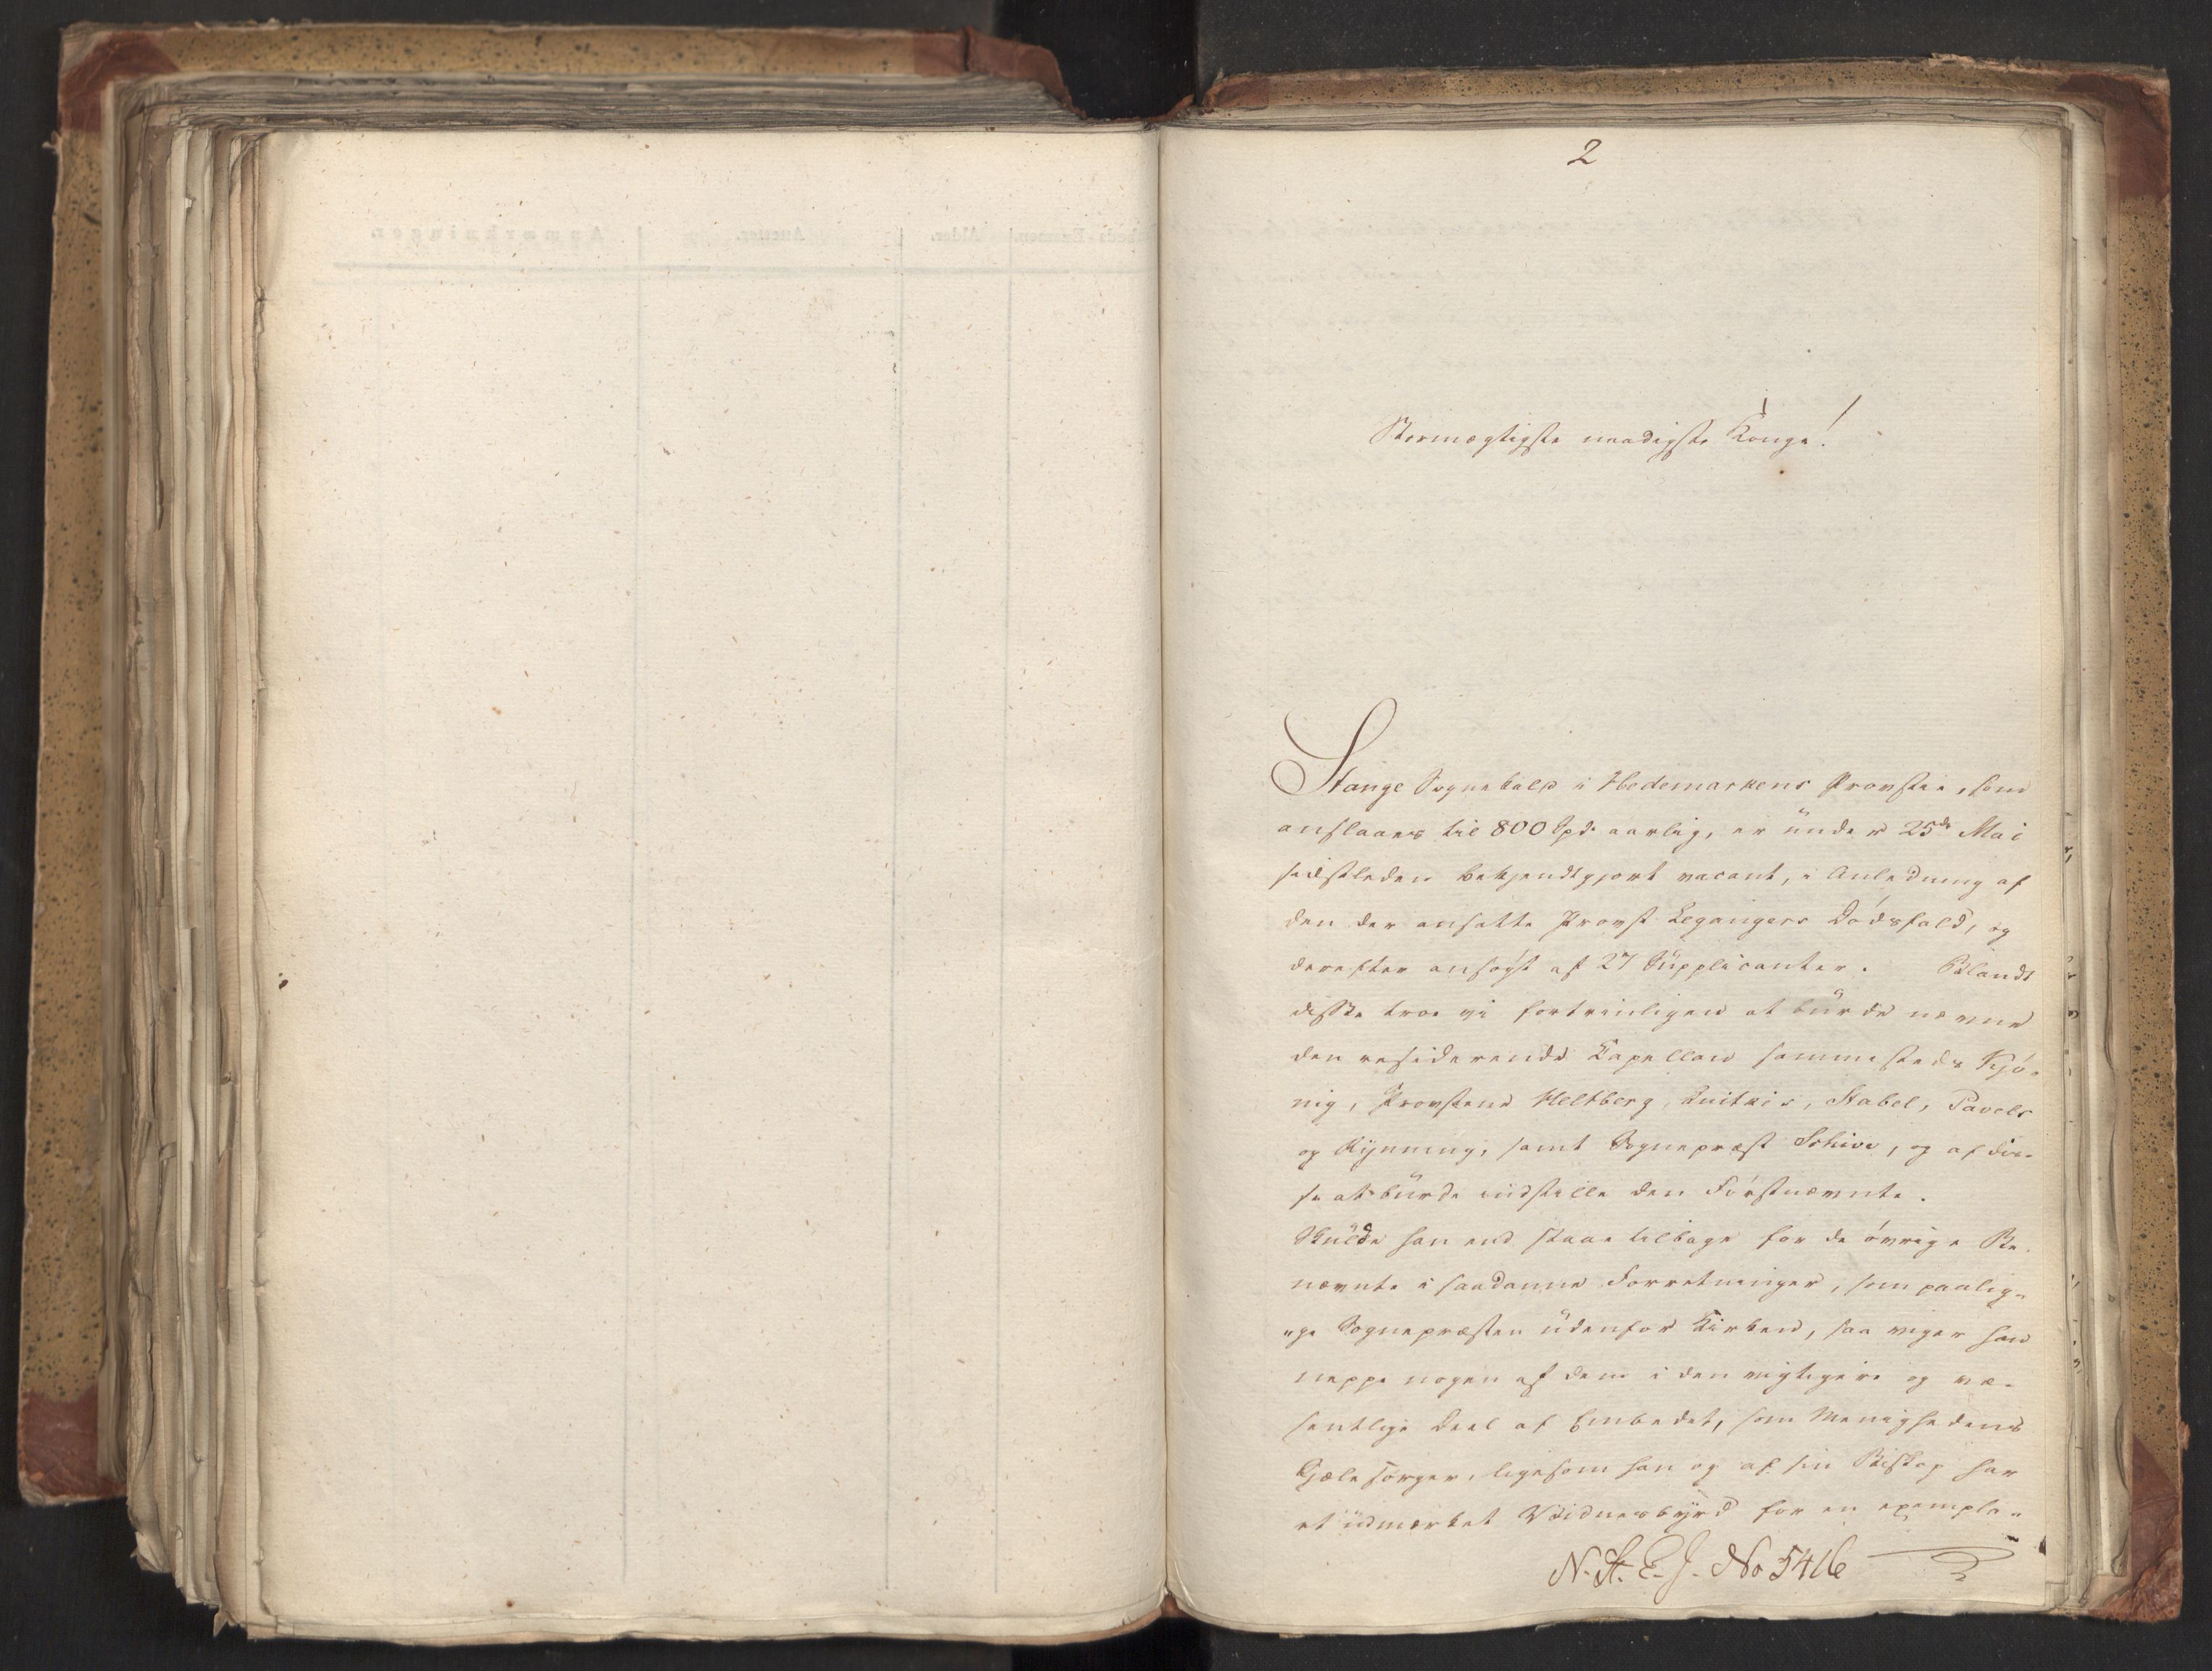 2
Stormægtigste naadigste Konge!
Stange Sognekald i Hedemarkens Provstie, som
anslaaes til 800 Spd. aarlig, er under 25de Mai
sidstleden bekjendtgjort vacant, i Anledning af
den der ansatte Provst Leganger's Dødsfald, og
derefter ansøgt af 27 Supplicanter. Blandt
disse troe vi fortrinligen at burde nævne
den residerende Capellan sammesteds Kjø-
nig, Provstene Heltberg, Stabel, Pavels
og Rynning, samt Sognepræst Schive, og af dis-
se at burde indstille den Førstnævnte.
Skulde han end staae tilbage for de øvrige Be-
nævnte i saadanne Forretninger, som paalig-
"ge Sognepræsten udenfor Kirken, saa viger han
neppe nogen af dem i den vigtigere og væ-
sentlige Deel af Embedet, som Menighedens
Sjælesørger, ligesom han og af sin Biskop har
et udmærket Vidnesbyrd for en exempla-
N. St. E. J. No 5416
Anmærkninger.
Attester.
Alder.
Examen.